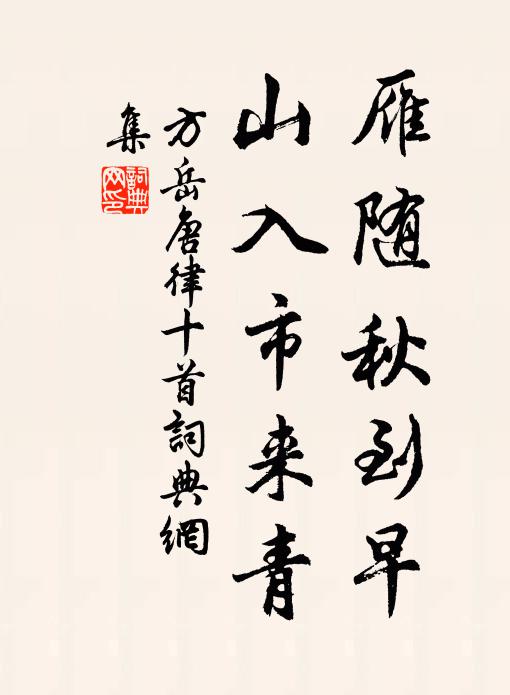 雁随秋到早
山入市来青
方岳唐律十首詞典網
集
詞典网印